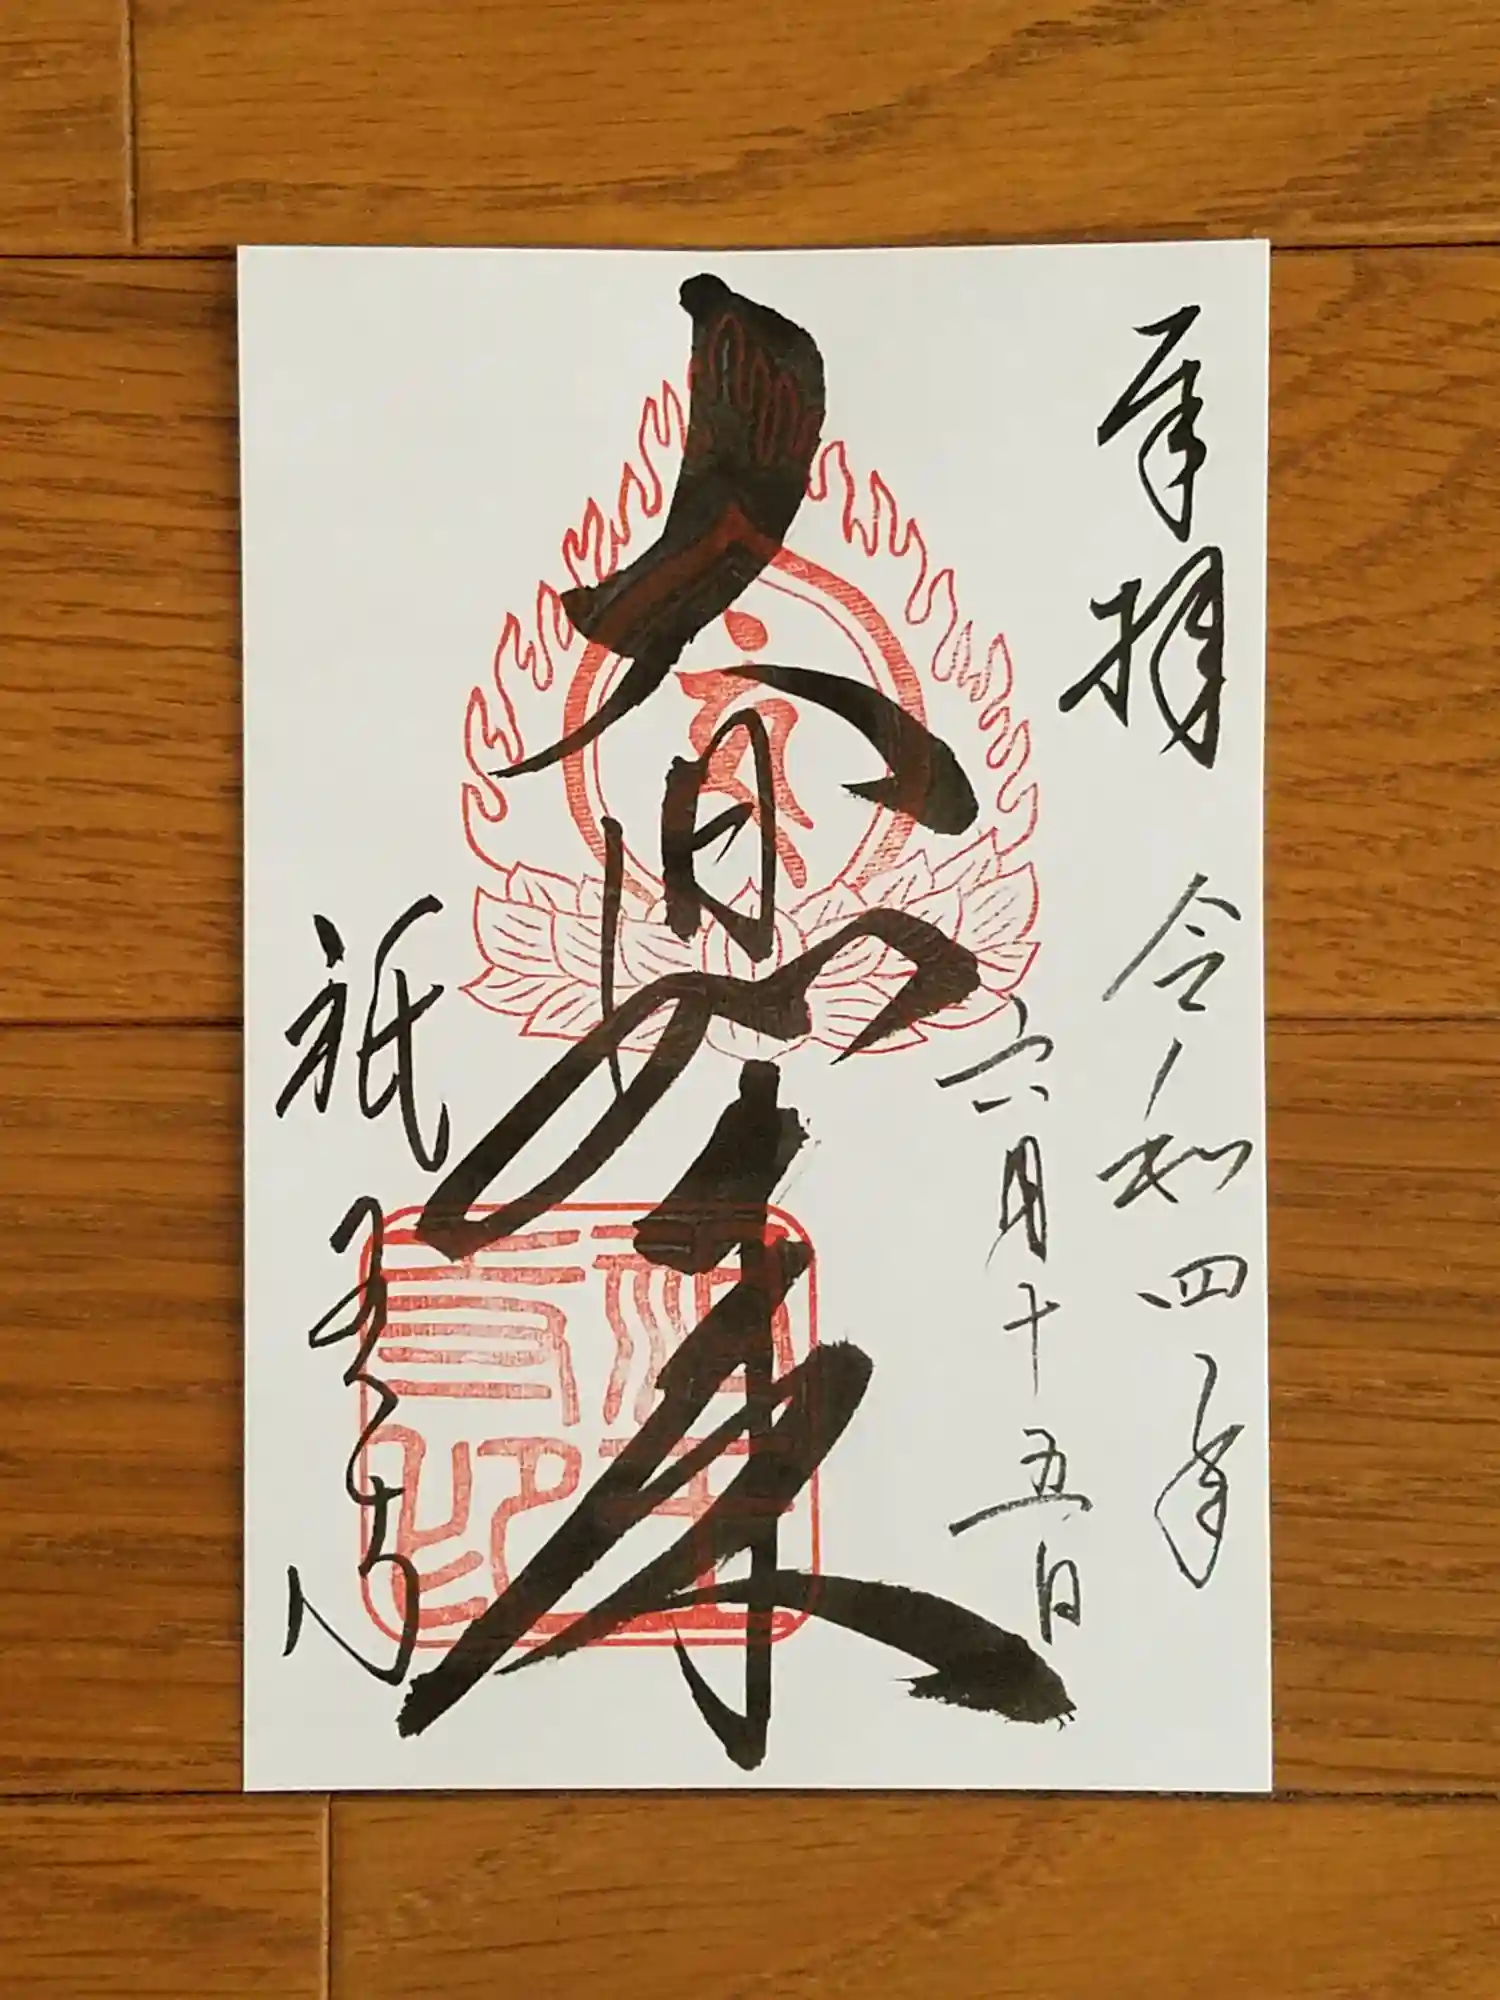 奉拝
令和四年
六月十五日
大日如来
祇王寺